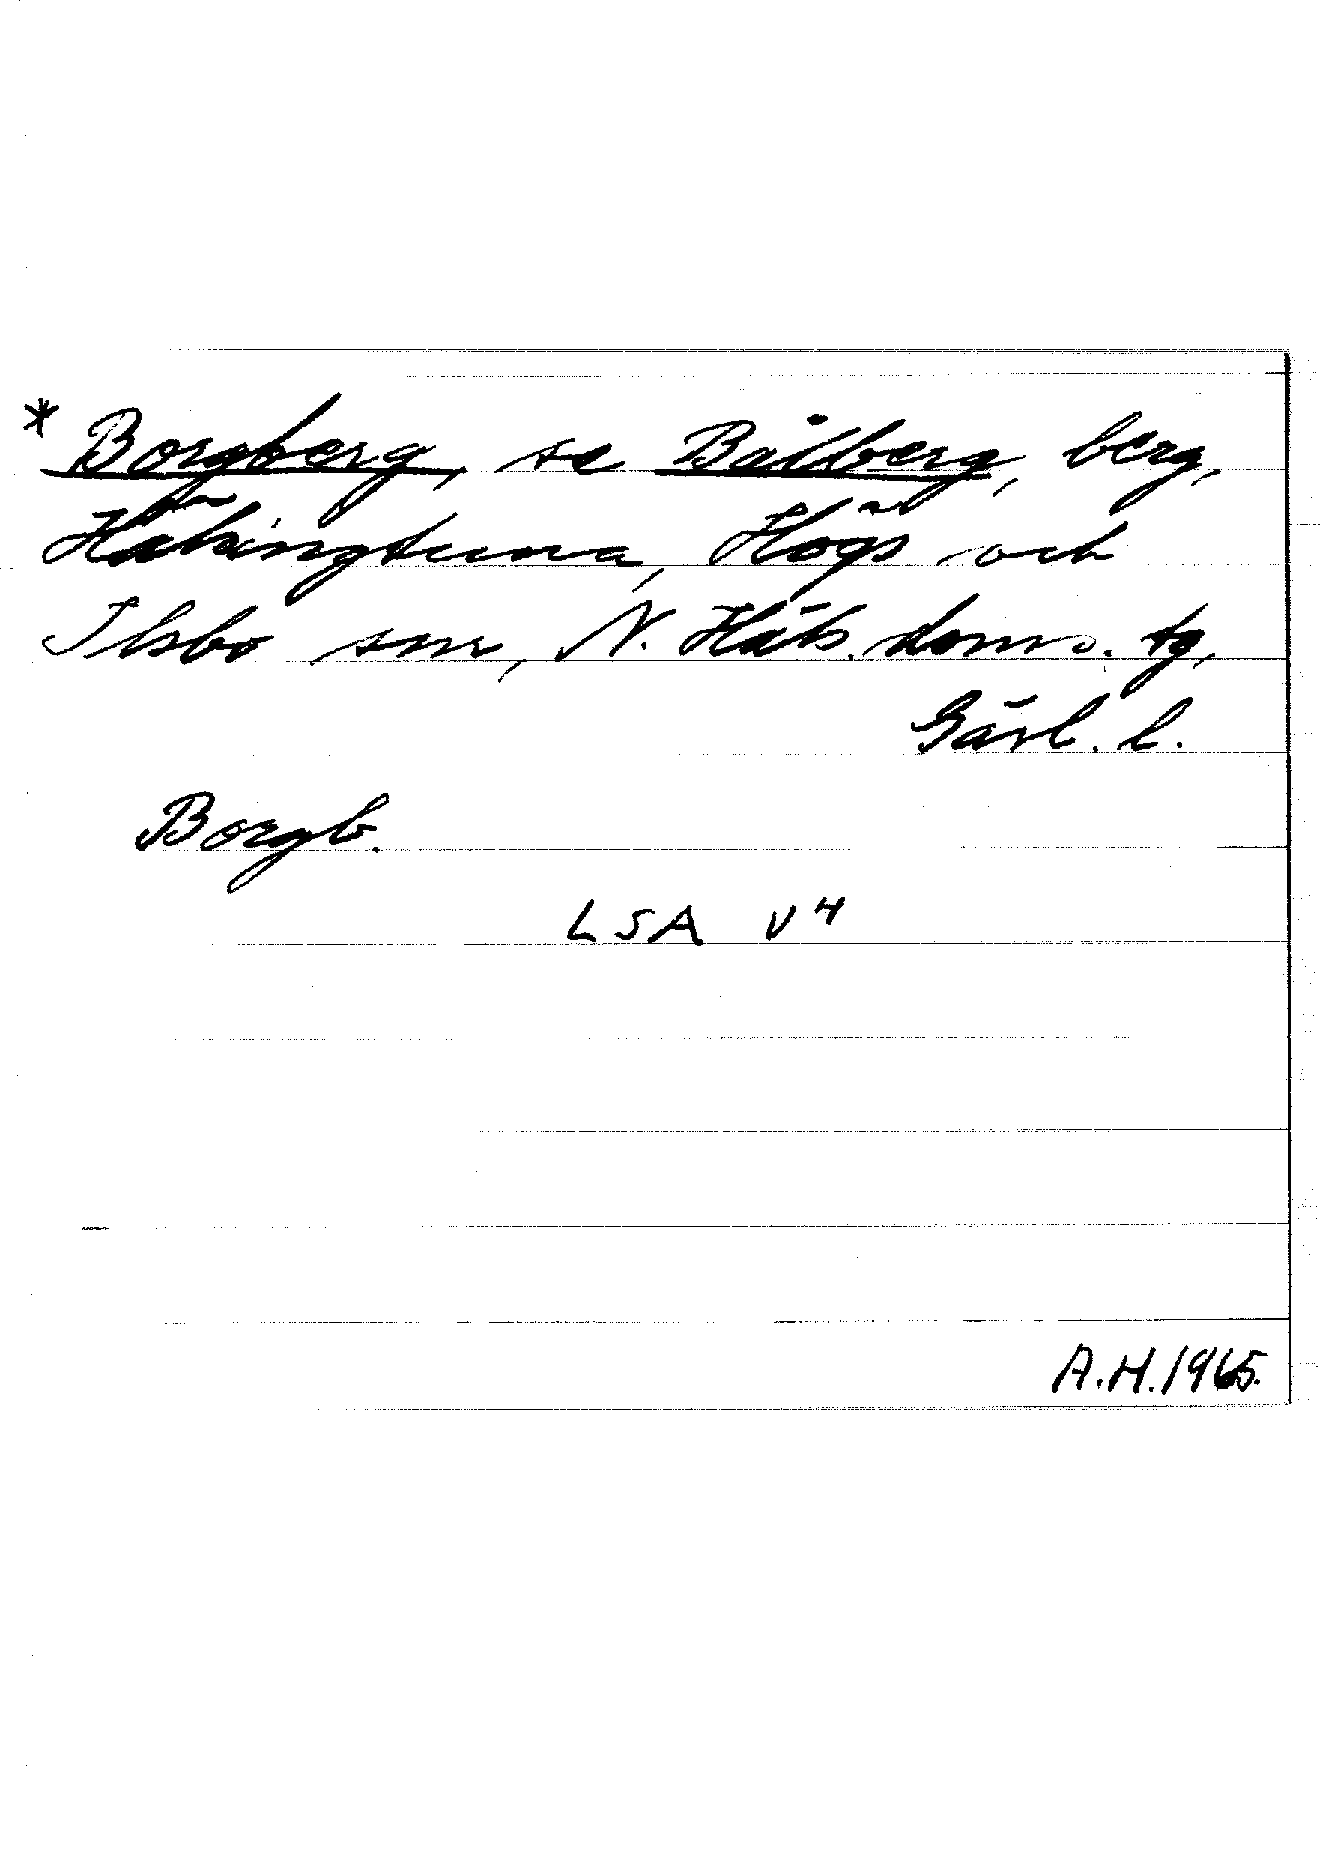 * Borgberg, se Bålberg, berg,
Hälsingtuna, Högs och
Ilsbo snr, N. Häls. doms. tg,
Gävl. l.
Borgb.
LSA V4
A.H. 1965.